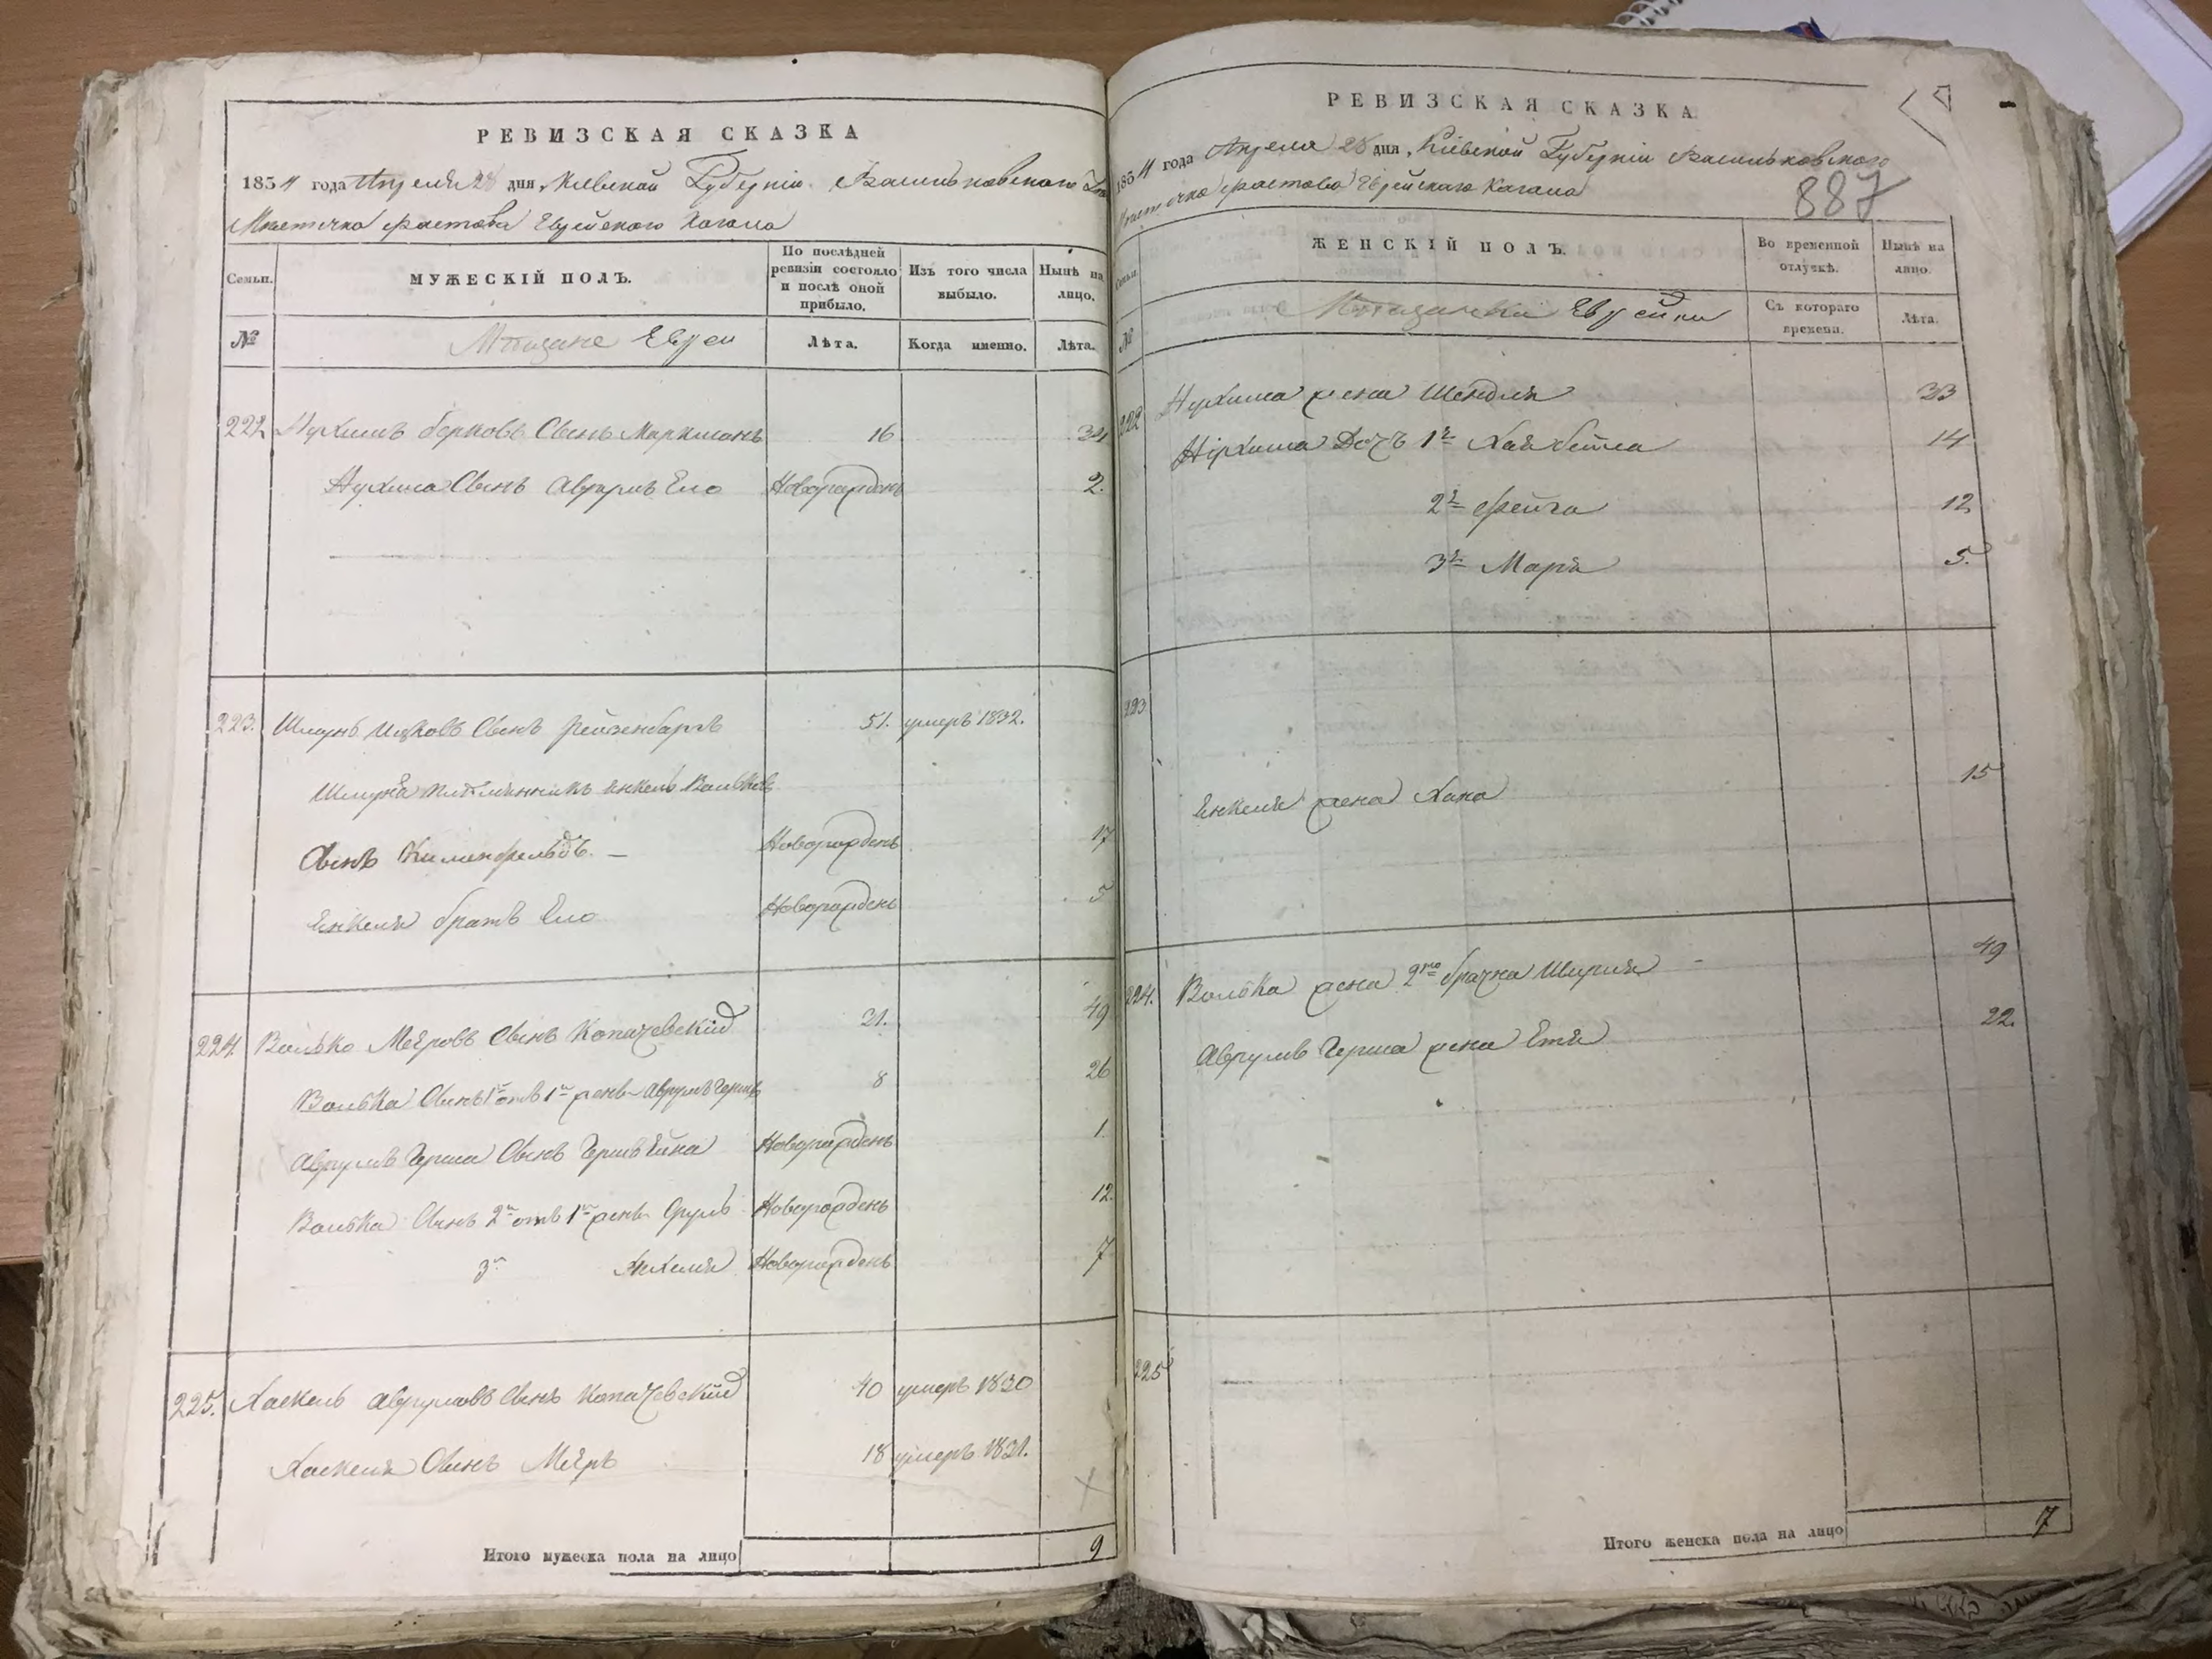 РЕВИЗСКАЯ СКАЗКА
1834 года Апреля 28 дня, Кіевской Губерніи Васильковского
Местечка Фастова Еврейского Кагала
Семьи.
МУЖЕСКІЙ ПОЛЪ.
По послѣдней ревизіи состояло и послѣ оной прибыло.
Изъ того числа выбыло.
Нынѣ на лицо.
№
Мѣщане Евреи
Лѣта.
Когда именно.
Лѣта.
222 Нухимъ Берковъ Сынъ Маркманъ 16 34
Нухима Сынъ Аврумъ Ело Новорожденъ 2.
223. Шлуинъ Ицковъ Сынъ Рейзенбаргъ 51. умеръ 1832.
племянникъ Янкель Вольковъ
Сынъ Новорожденъ 17
Янкеля братъ Ело Новорожденъ 5
224. Волько Меяровъ Сынъ Копачевскій 31. 49
Волька Сынъ 1й отъ 1й жены Аврумъ Гершъ 8 26
Аврумъ Герша Сынъ Новорожденъ 1
Волька Сынъ 2й отъ 1й жены Сруль Новорожденъ 12.
3й Ихеля Новорожденъ 7
225. Хаскель Аврумовъ Сынъ Копачевскій 40 умеръ 1830
Хаскеля Сынъ Меяръ 18 умеръ 1831.
Итого мужеска пола на лицо 9
РЕВИЗСКАЯ СКАЗКА
1834 года Апреля 28 дня, Кіевской Губерніи Васильковского
Местечка Фастова Еврейскаго Кагала
887
Семьи.
ЖЕНСКІЙ ПОЛЪ.
Во временной отлучкѣ.
Нынѣ на лицо.
№
Мѣщанки Еврейки
Съ котораго времени.
Лѣта.
222 Нухима жена Шендля 33
Нухима Дочь 1я Хая Бейла 14
2я Фейга 12
3я Маря 5.
223
Янкеля жена Хана 15
224. Волька жена 2го брачна Ширля 49
Аврумъ Герша жена Етя 22.
225
Итого женска пола на лицо 7